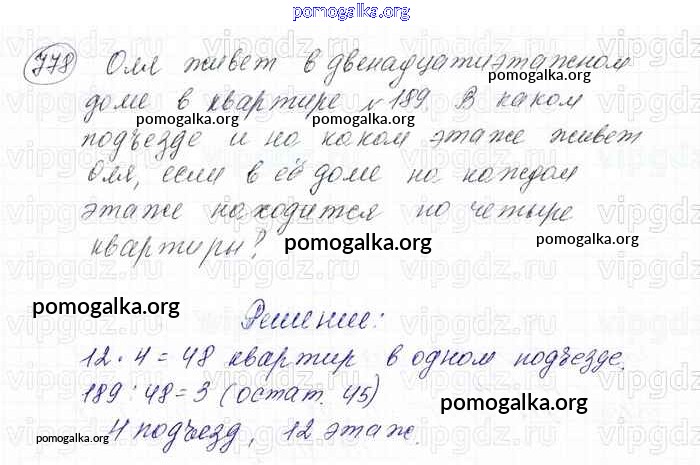 pomogalka.org
778 Оля живет в двенадцатиэтажном
pomogalka.org
доме в квартире №189. В каком
pomogalka.org pomogalka.org
подъезде и на каком этаже живет
Оля, если в её доме на каждом
этаже находится по четыре
квартиры?
pomogalka.org pomogalka.org
pomogalka.org
Решение:
12 · 4 = 48 квартир в одном подъезде.
189 : 48 = 3 (остат. 45)
pomogalka.org
4 подъезд, 12 этаж.
pomogalka.org